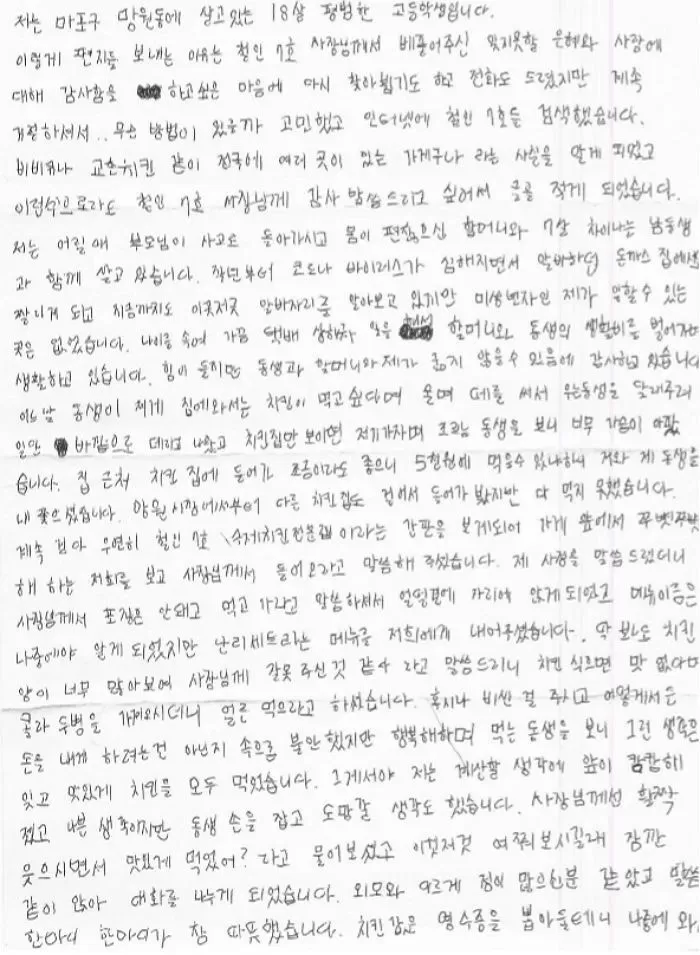 저는 마포구 망원동에 살고있는 18살 평범한 고등학생입니다.
이렇게 편지를 보내는 이유는 철인 7호 사장님께서 베풀어주신 잊지못할 은혜와 사랑에
대해 감사함을 하고싶은 마음에 다시 찾아뵙기도 하고 전화도 드렸지만 계속
거절하셔서.. 무슨 방법이 있을까 고민했고 인터넷에 철인 7호를 검색했습니다.
비비큐나 교촌치킨 같이 전국에 여러 곳이 있는 가게구나 라는 사실을 알게 되었고
이런식으로라도 철인 7호 사장님께 감사 말씀드리고 싶어서 글을 적게 되었습니다.
저는 어릴때 부모님이 사고로 돌아가시고 몸이 편찮으신 할머니와 7살 차이나는 남동생
과 함께 살고 있습니다. 작년부터 코로나 바이러스가 심해지면서 알바하던 돈까스 집에서
짤리게 되고 지금까지도 이곳저곳 알바자리를 알아보고 있지만 미성년자인 제가 일할수 있는
곳은 없었습니다. 나이를 속여 가끔 택배 상하차 일을 해서 할머니와 동생의 생활비를 벌어가며
생활하고 있습니다. 힘이 들지만 동생과 할머니와 제가 굶지 않을수 있음에 감사하고 있습니다
어느 날 동생이 제게 집에와서는 치킨이 먹고싶다며 울며 떼를 써서 우는동생을 달래주려
일단 바깥으로 데리고 나왔고 치킨집만 보이면 저기가자며 조르는 동생을 보니 너무 가슴이 아팠
습니다. 집 근처 치킨 집에 들어가 조금이라도 좋으니 5천원에 먹을수 있냐하니 저와 제 동생을
내 쫓으셨습니다. 망원시장에서부터 다른 치킨집도 걸어서 들어가 봤지만 다 먹지 못했습니다.
계속 걷다 우연히 철인 7호 수제치킨전문점 이라는 간판을 보게되어 가게 앞에서 쭈뼛쭈뼛
해 하는 저희를 보고 사장님께서 들어오라고 말씀해 주셨습니다. 제 사정을 말씀 드렸더니
사장님께서 포장은 안돼고 먹고 가라고 말씀하셔서 얼떨결에 자리에 앉게 되었고 메뉴이름은
나중에야 알게 되었지만 난리세트라는 메뉴를 저희에게 내어주셨습니다. 딱 봐도 치킨
양이 너무 많아보여 사장님께 잘못 주신것 같다 라고 말씀드리니 치킨 식으면 맛 없다며
콜라 두병을 가져오시더니 얼른 먹으라고 하셨습니다. 혹시나 비싼 걸 주시고 어떻게서든
돈을 내게 하려는건 아닌지 속으로 불안했지만 행복해하며 먹는 동생을 보니 그런 생각은
잊고 맛있게 치킨을 모두 먹었습니다. 그제서야 저는 계산할 생각에 앞이 캄캄해
졌고 나쁜 생각이지만 동생 손을 잡고 도망갈 생각도 했습니다. 사장님께선 활짝
웃으시면서 맛있게 먹었어? 라고 물어보셨고 이것저것 여쭤보시길래 잠깐
같이 앉아 대화를 나누게 되었습니다. 외모와 다르게 정이 많으신분 같았고 말씀
한마디 한마디가 참 따뜻했습니다. 치킨값은 영수증을 뽑아둘테니 나중에 와